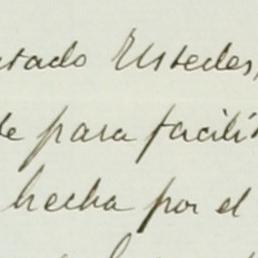 tado Ustedes,
para facili
hecha por el